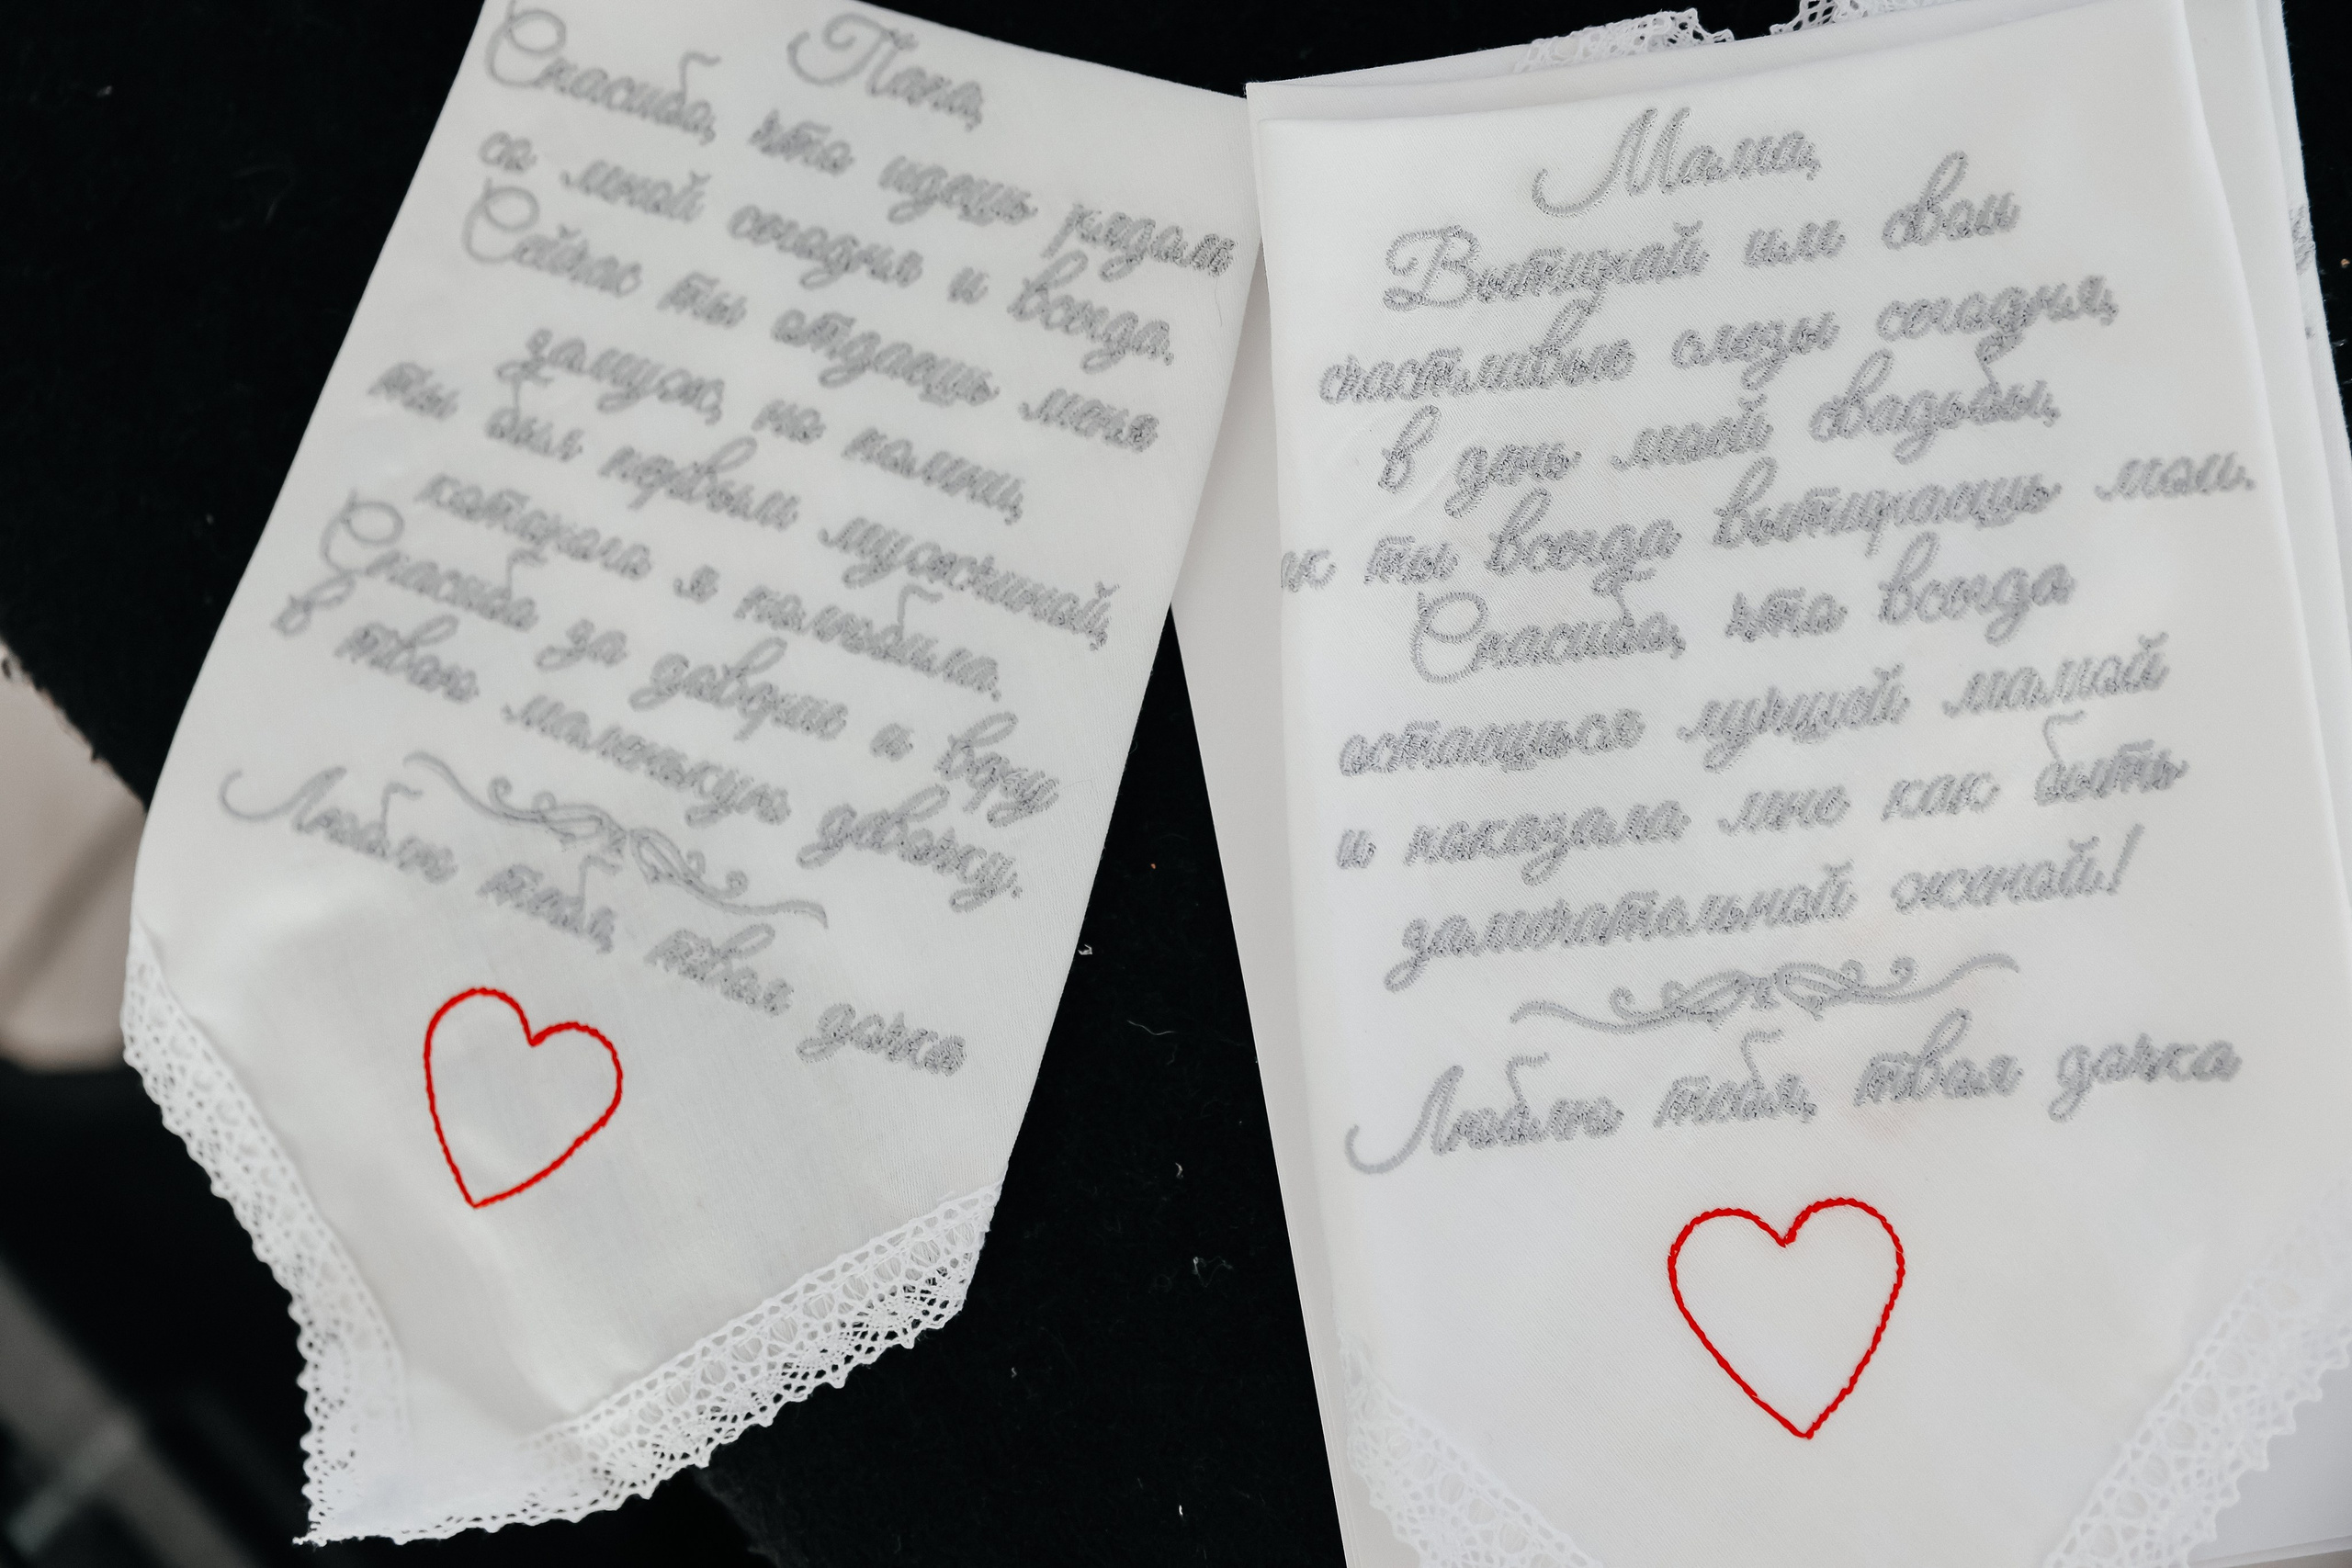 Папа,
Спасибо, что идешь рядом
со мной сегодня и всегда.
Сейчас ты отдаешь меня
замуж, но помни,
ты был первым мужчиной,
которого я полюбила.
Спасибо за доверие и веру
в твою маленькую девочку.
Люблю тебя, твоя дочка
Мама,
Вытирай им свои
счастливые слезы сегодня,
в день моей свадьбы,
ты всегда вытираешь мои.
Спасибо, что всегда
остаешься лучшей мамой
и показала мне как быть
замечательной женой!
Люблю тебя, твоя дочка